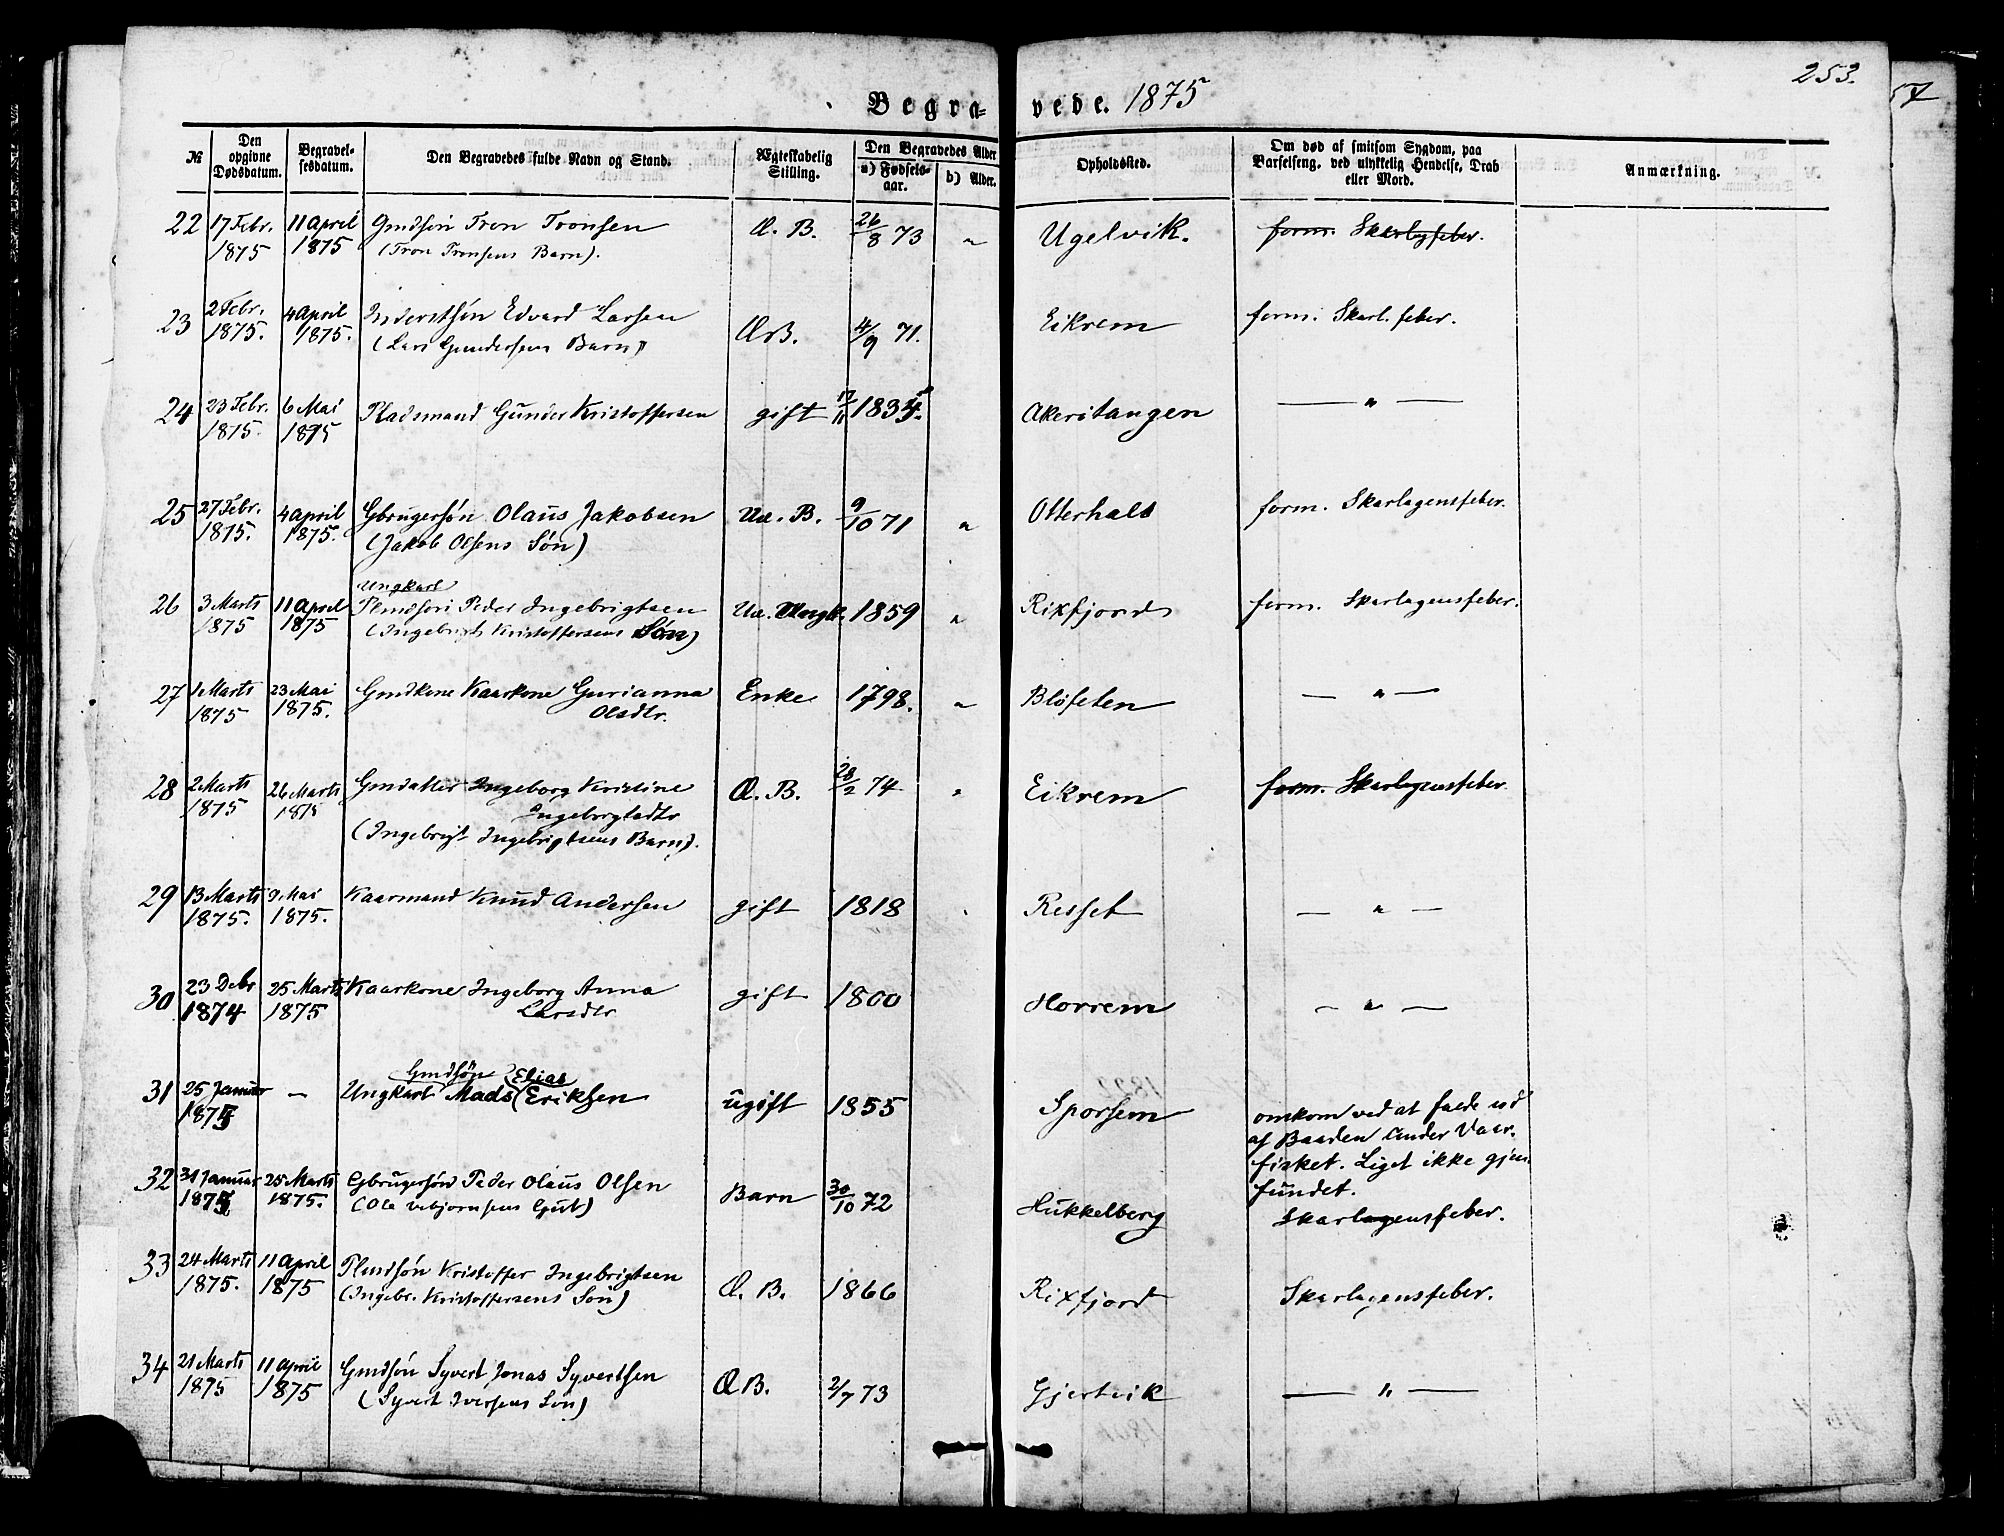 253.
Begra-vede. 1875
№
Den opgivne Dødsdatum.
Begravel-sesdatum.
Den Begravedes fulde Navn og Stand.
Ægteskabelig Stilling.
Den Begravedes Alder
a) Fødsels-aar.
b) Alder.
Opholdssted.
Om død af smitsom Sygdom, paa Barselseng, ved ulykkelig Hendelse, Drab eller Mord.
Anmærkning.
22 17 Febr. 11 April Gmdsøn Tron Tronsen Æ. B. 26/8 73 " Ugelvik. form. Skarlagsfeber.
1875 1875 (Tron Tronsens Barn).
23 2 Febr. 4 April Inderstsøn Edvard Larsen ÆB. 4/9 71. Eikrem form. Skarl. feber.
1875. 1875. (Lars Gundersens Barn)
24 23 Febr. 6 Mai Pladsmand Gunder Kristoffersen gift 17/11 1834. Akerstangen — " —
1875. 1875
25 27 Febr. 4 April Gbrugersøn Olaus Jakobsen Uæ. B. 9/10 71 " Otterhals form. Skarlagensfeber.
1875. 1875. (Jakob Olsens Søn)
Ungkarl
26 3 Marts 11 April Plmdsøn Peder Ingebrigtsen Uæ. Ungk. 1859 " Rixfjord form. Skarlagensfeber.
1875 1875 (Ingebrigt Kristoffersens Søn)
27 1 Marts 23 Mai Gmdkone Kaarkone Gurianna Enke 1798. " Bløfeten — " —
1875 1875. Olsdtr.
28 2 Marts 26 Marts Gmdatter Ingeborg Kristine Æ. B. 28/2 74 " Eikrem form. Skarlagensfeber
1875 1875 Ingebrigtsdtr
(Ingebrigt Ingebrigtsens Barn).
29 13 Marts 9 Mai Kaarmand Knud Andersen gift 1818 Resset — " —
1875. 1875.
30 23 Debr 25 Marts Kaarkone Ingeborg Anna gift 1800 Horrem — " —
1874 1875 Larsdtr
Gmdsøn Elias
31 25 Januar — Ungkarl Mads (Eriksen ugift 1855 Sporsem omkom ved at falde ud
1875 af Baaden under Vaar-
fisket. Liget ikke gjen-
fundet.
32 31 Januar 25 Marts Gbrugersøn Peder Olaus Olsen Barn 30/10 72 Hukkelberg Skarlagensfeber.
1875 1875. (Ole Vebjørnsens Gut)
33 24 Marts 11 April Plmdsøn Kristoffer Ingebrigtsen Æ. B. 1866 Rixfjord Skarlagensfeber.
1875. 1875 (Ingebr. Kristoffersens Søn)
34 21 Marts 11 April Gmdsøn Syvert Jonas Syvertsen ÆB. 2/7 73 Gjertvik — " —
1875 1875 (Syvert Iversens Søn)